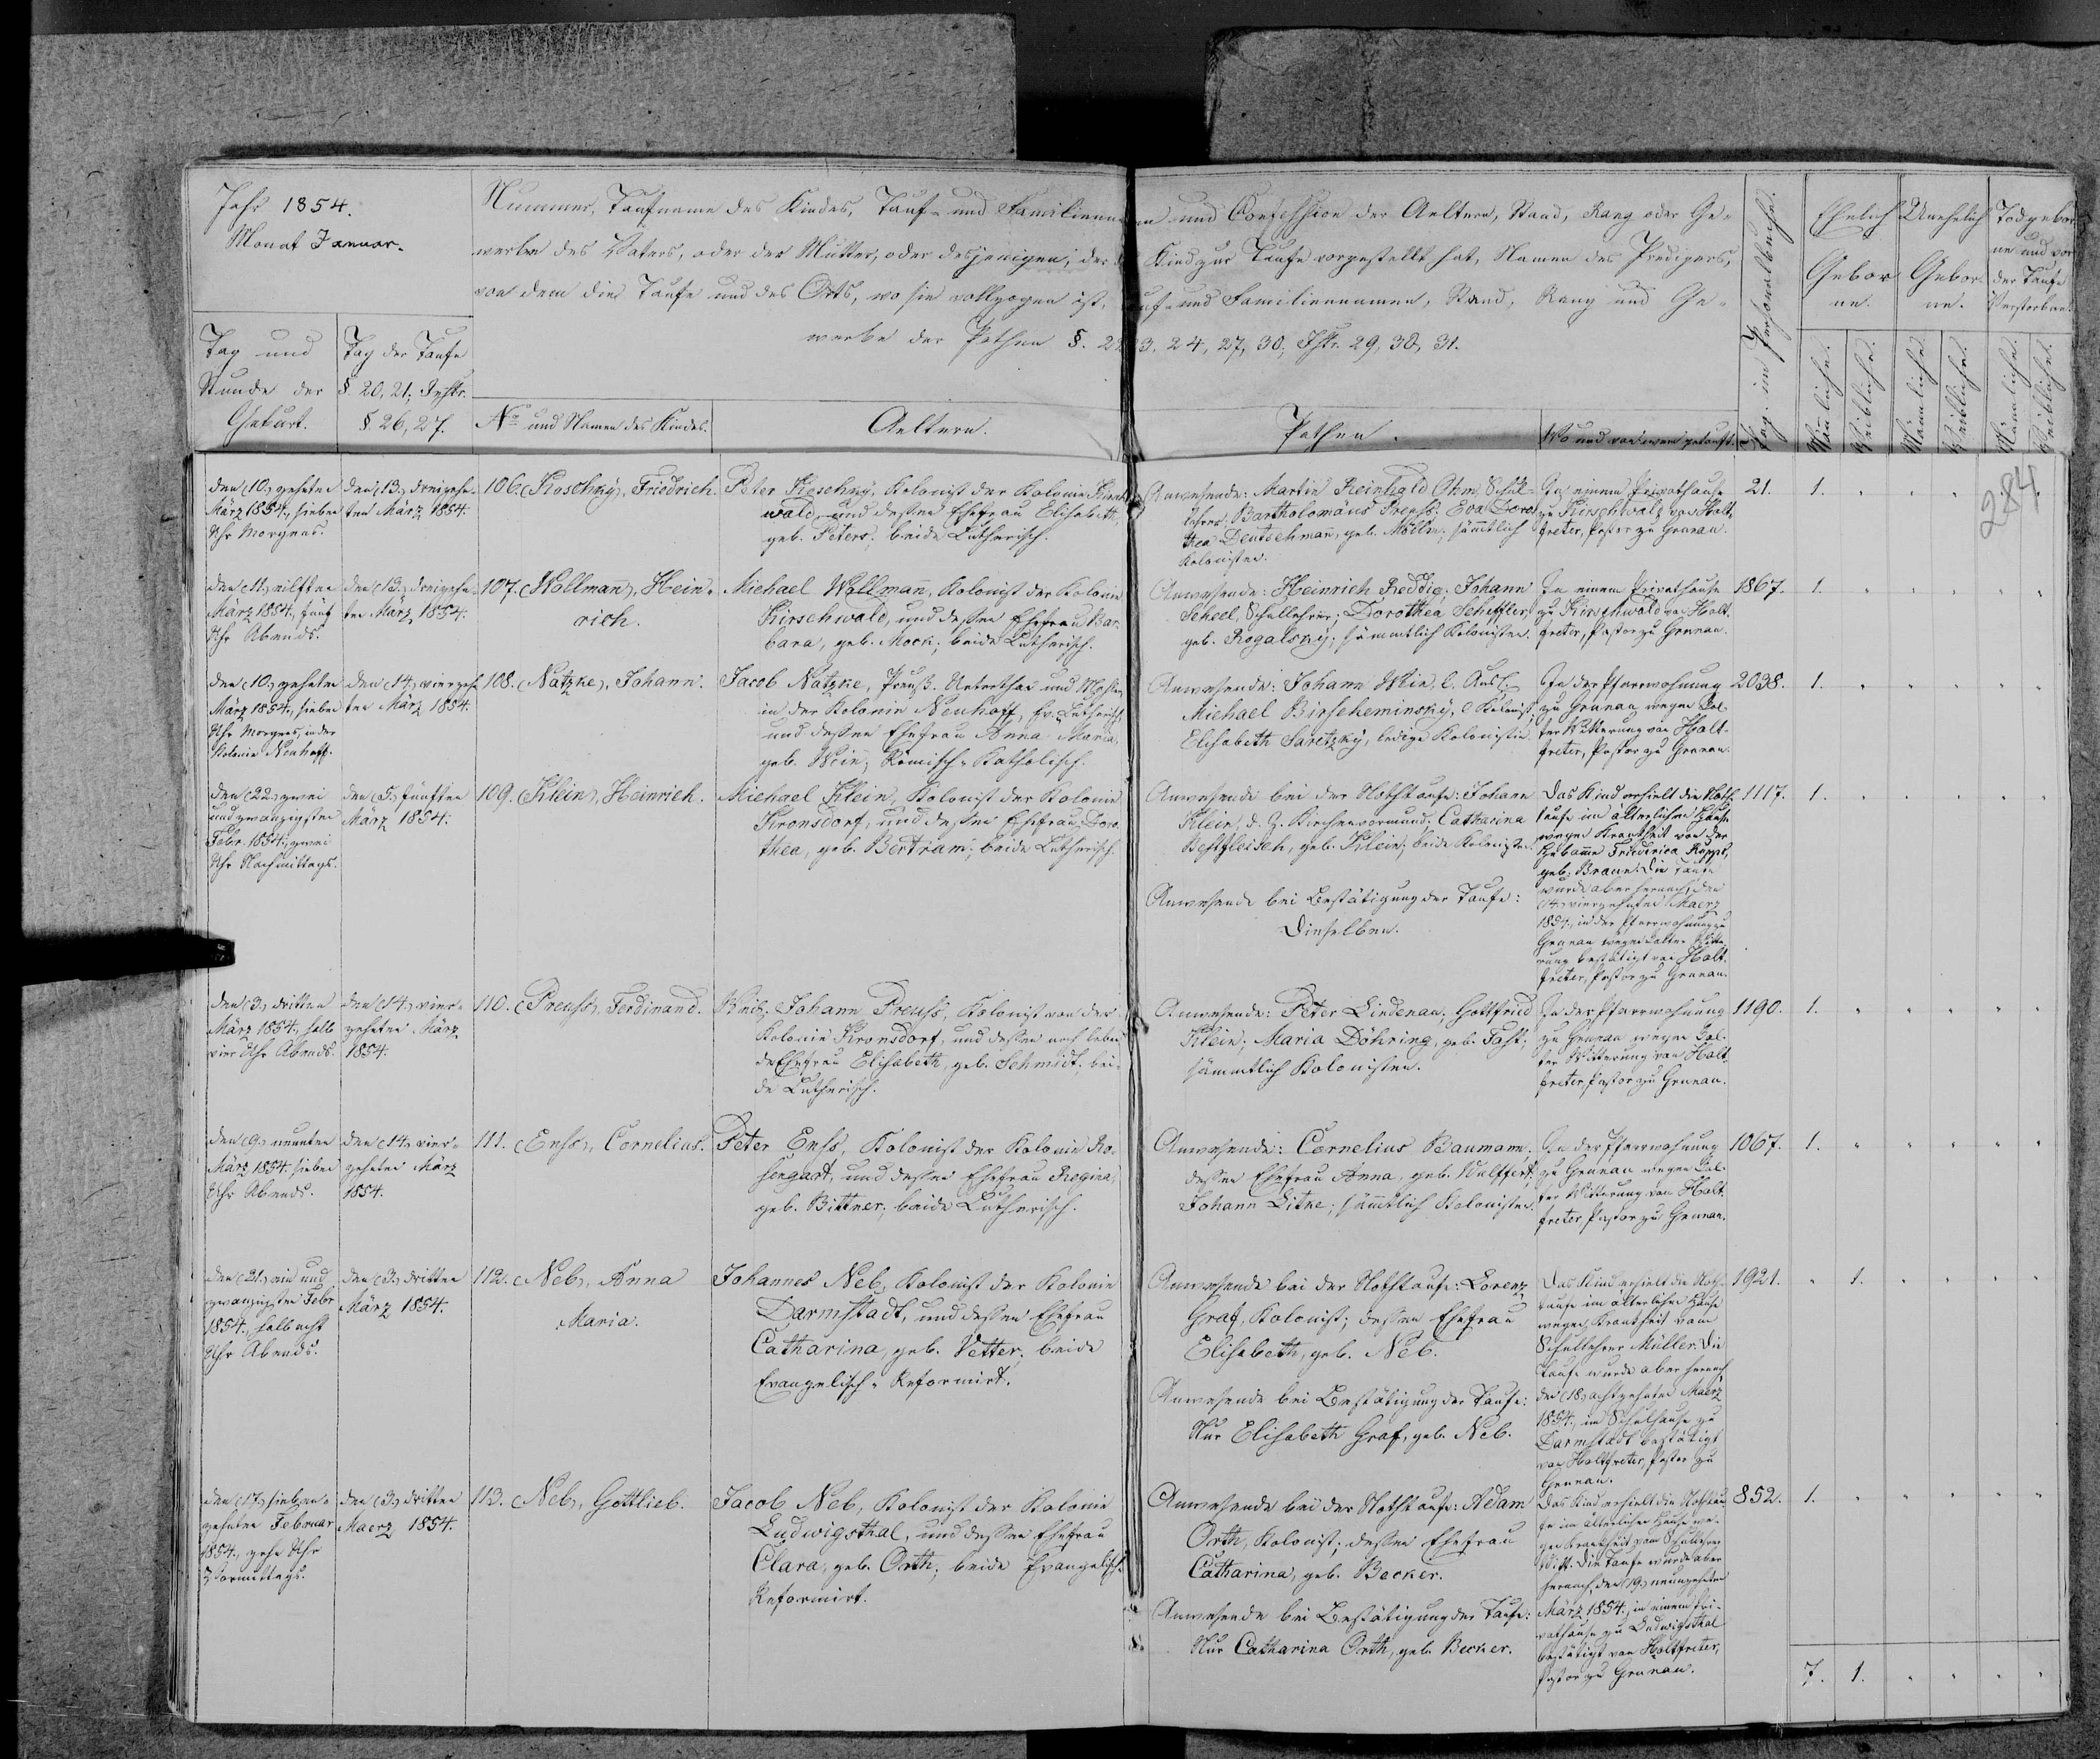 Jahr 1854.
Monat Januar.
Nummer, Taufname des Kindes, Tauf- und Familiennamen und Confession der Aeltern, Stand, Rang oder Ge-
werbe des Vaters, oder der Mutter, oder desjenigen, der d Kind zur Taufe vorgestellt hat, Namen des Predigers,
von dem die Taufe und des Orts, wo sie vollzogen ist, auf- und Familiennamen, Stand, Rang und Ge-
werbe der Pathen §. 22 23. 24, 27, 30; Istr. 29, 30, 31.
Tag und
Stunde der
Geburt.
Tag der Taufe
§. 20, 21; Instr.
§. 26, 27.
No und Namen des Kindes.
Aeltern.
Pathen.
Wo und von wem getauft.
Pag. im Personalbuche.
Ehelich
Gebor
ne.
Unehelich
Gebor-
ne.
Todgebor
ne und vor
der Taufe
Verstorbene.
Männliche.
Weibliche.
Männliche.
Weibliche.
Männliche.
Weibliche.
284
den (10.) zehnten
März 1854., sieben
Uhr Morgens.
den (13.) dreizehn-
ten März 1854.
106. (Koschky), Friedrich.
Peter Koschky, Kolonist der Kolonie Kirsch
wald, und dessen Ehefrau Elisabeth,
geb. Peters; beide Lutherisch.
Anwesende: Martin Reinhold Ohm, Schul-
lehrer; Bartholomäus Preuss; Eva Doro
thea Deutschmann, geb. Möllin; sämmtlich
Kolonisten.
In einem Privathause
zu Kirschwald von Holt
freter, Pastor zu Grunau.
21.
1.
den (11.) eilften
März 1854., fünf
Uhr Abends.
den (13.) dreizehn-
ten März 1854.
107. (Wollman), Hein-
rich.
Michael Wollmann, Kolonist der Kolonie
Kirschwald, und dessen Ehefrau Bar
bara, geb. Mock; beide Lutherisch.
Anwesende: Heinrich Reddig; Johann
Scheel, Schullehrer; Dorothea Scheffler,
geb. Rogalsky; sämmtlich Kolonisten.
In einem Privathause
zu Kirschwald von Holt
freter, Pastor zu Grunau.
1867.
1.
den (10.) zehnten
März 1854., sieben
Uhr Morgens, in der
Kolonie Neuhoff.
den (14.) vierzehn
ten März 1854.
108. (Natzke), Johann.
Jacob Natzke, Preuß. Unterthan und
in der Kolonie Neuhoff, Ev. Lutherisch,
und dessen Ehefrau Anna Maria,
geb. Wein; Römisch-Katholisch.
Anwesende: Johann
Michael Birscheminsky, Kolonist;
Elisabeth Saretzky, ledige Kolonistin.
In der Pfarrwohnung
zu Grunau wegen kal-
ter Witterung von Holt-
freter, Pastor zu Grunau.
2038.
1.
den (22.) zwei
und zwanzigsten
Febr. 1854., zwei
Uhr Nachmittags.
den (5.) fünften
März 1854.
109. (Klein), Heinrich.
Michael Klein, Kolonist der Kolonie
Kronsdorf, und dessen Ehefrau Doro
thea, geb. Bertram; beide Lutherisch.
Anwesende bei der Nothtaufe: Johann
Klein, d. Z. Kirchenvormund. Catharina
geb. Klein; beide Kolonisten.
Anwesende bei Bestätigung der Taufe:
Dieselben.
Das Kind erhielt die Noth
taufe im älterlichen Hause
wegen Krankheit von der
Hebamme Friederica
geb. Braun. Die Taufe
wurde aber hernach, den
(14.) vierzehnten Maerz
1854., in der Pfarrwohnung zu
Grunau wegen kalter Witte
rung bestätigt von Holt
freter, Pastor zu Grunau.
1117.
1.
den (3.) dritten
März 1854., halb
vier Uhr Abends.
den (14.) vier-
zehnten März
1854.
110. (Preuss), Ferdinand.
Johann Preuss, Kolonist von der
Kolonie Kronsdorf, und dessen noch leben
de Ehefrau Elisabeth, geb. Schmidt, bei-
de Lutherisch.
Anwesende: Peter Lindenau; Gottfried
Klein; Maria Döhring, geb. Fast;
sämmtlich Kolonisten.
In der Pfarrwohnung
zu Grunau wegen kal-
ter Witterung von Holt
freter, Pastor zu Grunau.
1190.
1.
den (9.) neunten
März 1854., sieben
Uhr Abends.
den (14.) vier-
zehnten März
1854.
111. (Enss), Cornelius.
Peter Enss, Kolonist der Kolonie Ro-
sengart, und dessen Ehefrau Regina,
geb. Bittner; beide Lutherisch.
Anwesende: Cornelius Baumann;
dessen Ehefrau Anna, geb. Wulffert;
Johann Litke; sämmtlich Kolonisten.
In der Pfarrwohnung
zu Grunau wegen kal-
ter Witterung von Holt
freter, Pastor zu Grunau.
1067.
1.
den (21.) ein und
zwanzigsten Febr.
1854., halb acht
Uhr Abends.
den (3.) dritten
März 1854.
112. (Neb), Anna
Maria.
Johannes Neb, Kolonist der Kolonie
Darmstadt, und dessen Ehefrau
Catharina, geb. Vetter; beide
Evangelisch-Reformirt.
Anwesende bei der Nothtaufe: Lorenz
Graf, Kolonist; dessen Ehefrau
Elisabeth, geb. Neb.
Anwesende bei Bestätigung der Taufe:
Nur Elisabeth Graf, geb. Neb.
Das Kind erhielt die Noth-
taufe im älterlichen Hause
wegen Krankheit vom
Schullehrer Müller. Die
Taufe wurde aber hernach,
den (18.) achtzehnten Maerz
1854., im Schulhause zu
Darmstadt bestätigt
von Holtfreter, Pastor zu
Grunau.
1921.
1.
den (17.) sieben-
zehnten Februar
1854., zehn Uhr
Vormittags.
den (3.) dritten
Maerz 1854.
113. (Neb), Gottlieb.
Jacob Neb, Kolonist der Kolonie
Ludwigsthal, und dessen Ehefrau
Clara, geb. Orth; beide Evangelisch
Reformirt.
Anwesende bei der Nothtaufe: Adam
Orth, Kolonist; dessen Ehefrau
Catharina, geb. Becker.
Anwesende bei Bestätigung der Taufe:
Nur Catharina Orth, geb. Becker.
Das Kind erhielt die Nothtau
fe im älterlichen Hause we-
gen Krankheit vom Schullehrer
Die Taufe wurde aber
hernach, den (19.) neunzehnten
März 1854., in einem Pri-
vathause zu Ludwigsthal
bestätigt von Holtfreter,
Pastor zu Grunau.
852.
1.
7. 1.